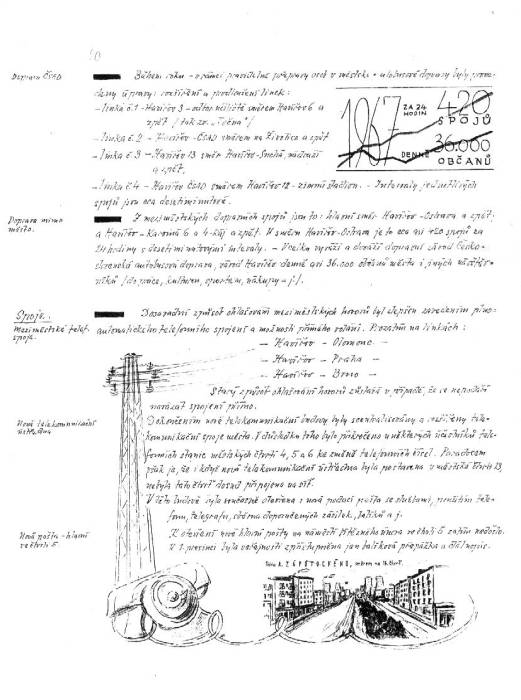 10
Doprava ČSAD
Během roku - v rámci pravidelné přepravy osob v městské autobusové dopravy byly prove-
deny úpravy: rozšíření a prodloužení linek:
- linka č. 1 - Havířov 3 - směrem Havířov 6 a
zpět / tak zv. „Točna"/
- linka č. 2 - Havířov - ČSAD směrem na Životice a zpět
- linka č. 3 - Havířov 13 směr Havířov - Suchá, nádraží
a zpět.
- linka č. 4 - Havířov ČSAD směrem Havířov 12 - zimní stadion. - Intervaly jednotlivých
spojů jsou cca desetiminutové.
1967
ZA 24
HODIN
420
SPOJŮ
DENNĚ
36.000
OBČANŮ
Doprava mimo
město.
Z meziměstských dopravních spojů jsou to: hlavní směr Havířov - Ostrava a zpět;
a Havířov - Karviná 6 a zpět. V směru Havířov - Ostrava je to cca asi 420 spojů za
24 hodiny s desetiminutovými intervaly. - Celkem vyváží a dováží dopravní závod Česko-
slovenská autobusová doprava, závod Havířov denně asi 36.000 občanů města i jiných návštěv-
níků / do práce, kulturou, sportem, nákupy - j/.
Spoje.
Meziměstské telef.
spoje.
Dosavadní způsob ohlašování meziměstských hovorů byl zlepšen zavedením plno-
automatického telefonního spojení a možností přímého volání. Prozatím na linkách:
- Havířov - Olomouc -
- Havířov - Praha -
- Havířov - Brno -
Starý způsob ohlašování hovorů zůstává v případě, že se nepodaří
navázat spojení přímo.
Nová telekomunikační
ústředna
Dokončením nové telekomunikační budovy byly scentralizovány a rozšířeny tele-
komunikační spoje města. V důsledku toho bylo přikročeno u některých účastníků tele-
fonních stanic městských čtvrtí 4, 5 a 6 ke změně telefonních čísel. Paradoxem
však je, že i když nová telekomunikační ústředna byla postavena v městské čtvrti 13,
nebyla tato čtvrť dosud připojena na síť.
V této budově byla současně otevřena i nová podací pošta se službami, použitím tele-
fonu, telegrafu, sběrna doporučených zásilek, balíků a j.
Nová pošta - hlavní
ve čtvrti 5
K otevření nové hlavní pošty na náměstí Vítězného února ve čtvrti 5 zatím nedošlo.
V prosinci byla veřejnosti zpřístupněna jen balíková přepážka a dálnopis.
Třída A. ZÁPOTOCKÉHO, směrem na